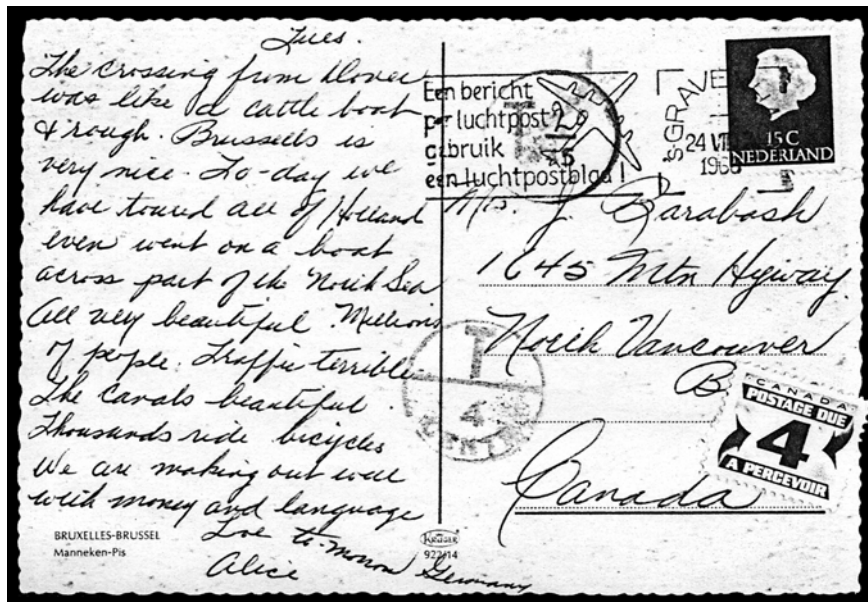 Tues.
The crossing from Dover
was like a cattle boat
& rough. Brussells is
very nice. To-day we
have toured all of Holland
even went on a boat
across part of the North Sea
All very beautiful. Millions
of people. Traffic terrible
The canals beautiful.
Thousands ride bicycles
We are making out well
with money and language
Love to-morrow Germany
Alice
BRUXELLES-BRUSSEL
Manneken-Pis
KRÜGER
922/14
Een bericht
per luchtpost
gebruik
een luchtpostblad!
T
20
45
's-GRAVE
24 VII
196
15 C
NEDERLAND
Mrs. J. Barabash
1645 Mtn Hyway.
North Vancouver
B
Canada
T
4
CENTIMES
CANADA
POSTAGE DUE
4
A PERCEVOIR